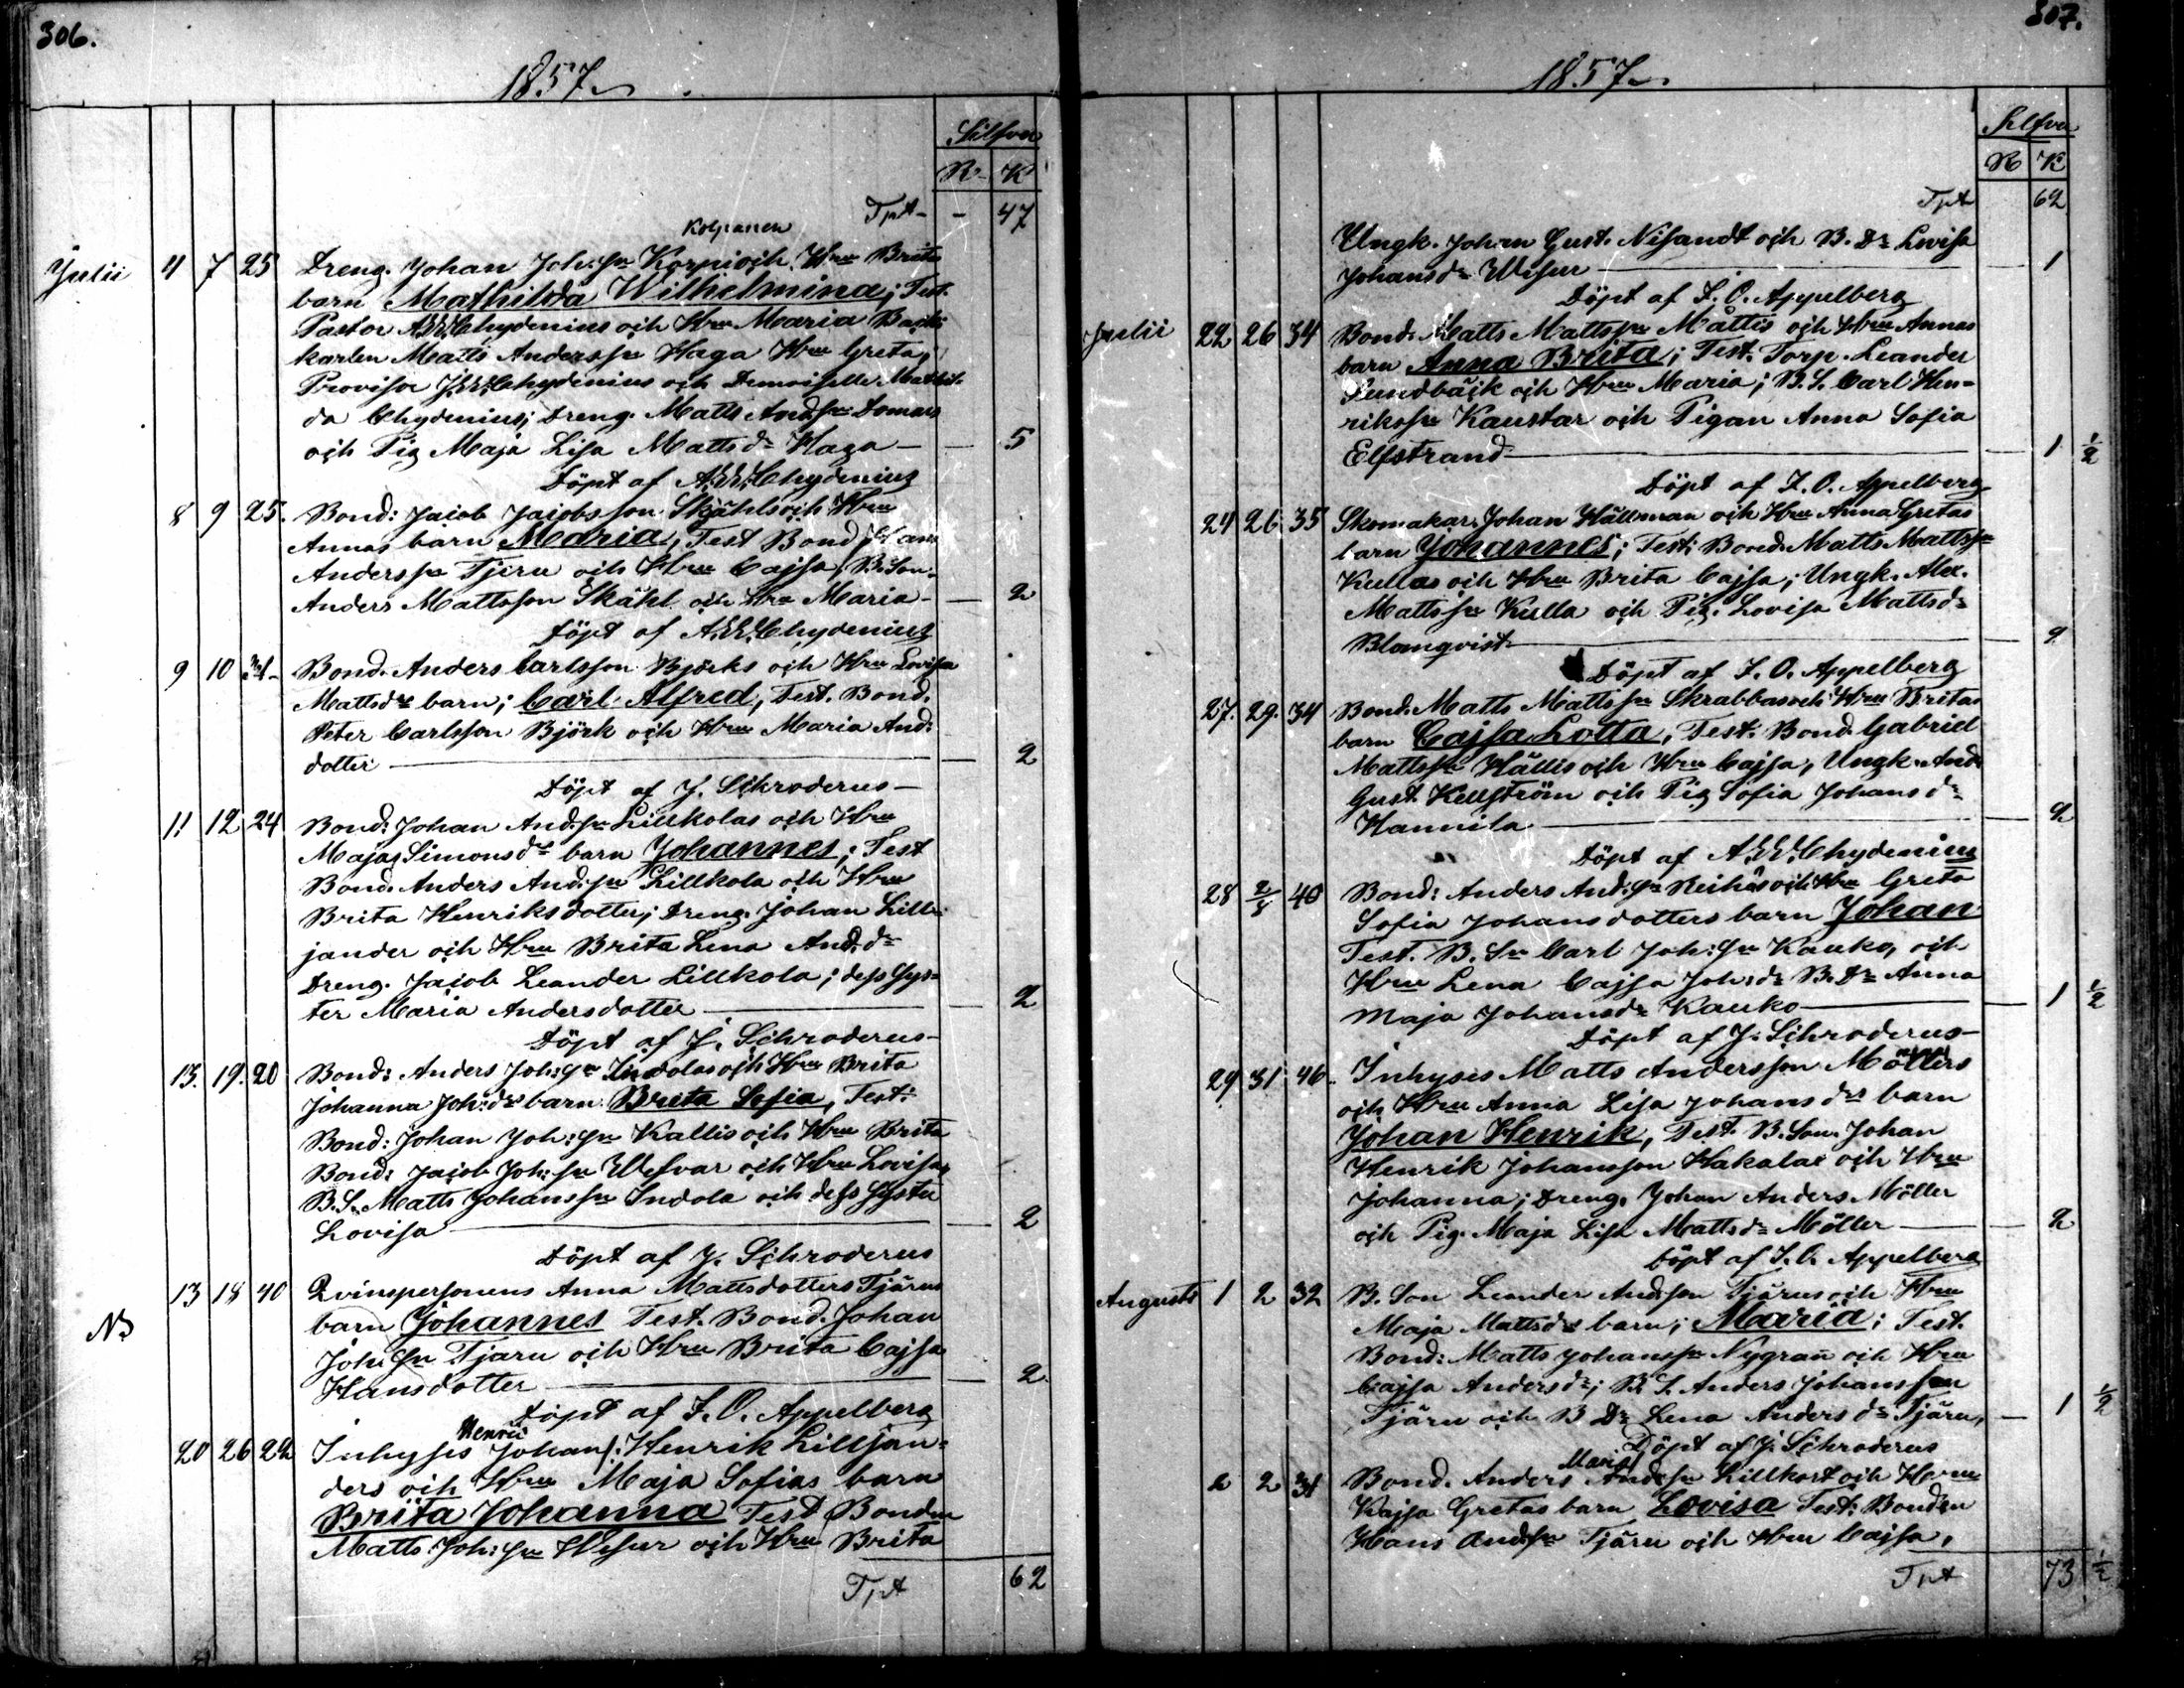 306.
1857
Silfver
R K
Tpt - 47
Kolpanen
Julii 4 7 25 Dreng. Johan Joh:sn Korpi och Hru Britas
barn Mathilda Wilhelmina; Test.
Pastor A.W. Chydenius och Hru Maria Back-
karlen Matts Anderssn Haga Hru Greta,
Provisor J.W. Chydenius och Demoiselle Mathil-
da Chydenius; Dreng. Matts And.sn Domars
och Pig Maja Lisa Matts dr Haga — 5
Döpt af A.W. Chydenius
8 9 25. Bond: Jacob Jacobsson Skåhls och Hru
Annas barn Maria, Test Bond Hans
Anderssn Tjeru och Hru Cajsa, B. Son
Anders Mattsson Skåhl och Hru Maria — 2
Döpt af A.W. Chydenius
9 10 Bond. Anders Carlsson Björks och Hru Lovisa
Mattsdrs barn; Carl Alfred, Test. Bond.
Peter Carlsson Björk och Hru Maria And:
dotter — 2
Döpt af J. Schroderus
11 12 24 Bond: Johan And:sn Lillkolas och Hru
Majas Simonsdrs barn Johannes; Test
Bond. Anders And:sn Lillkola och Hru
Brita Henriksdotter; Dreng. Johan Lill-
jander och Hru Brita Lena And.dr
Dreng. Jacob Leander Lillkola; dess sys-
ter Maria Andersdotter — 2
Döpt af J. Schroderus
13. 19. 20 Bond: Anders Joh:sn Indolas och Hru Brita
Johanna Joh:drs barn Brita Sofia, Test:
Bond: Johan Joh:sn Kallis och Hru Brita
Bond: Jacob Joh:sn Wesvar och Hru Lovisa,
B.S. Matts Johanssn Indola och dess Syster
Lovisa — 2
Döpt af J. Schroderus
13 18 40 Qvinspersonens Anna Mattsdotters Tjärus
N barn Johannes Test. Bond. Johan
Joh:Sn Tjaru och Hru Brita Cajsa
Hansdotter — 2
Döpt af F.O. Appelberg
Henric
20 26 22 Inhyses Johan Henrik Lilljan-
ders och Hru Maja Sofias barn
Brita Johanna Test Bonden
Matts Joh:Sn Wesur och Hru Brita
Tpt 62
307.
1857
Silfver
R K
Tpt 62
Ungk. Johan Gust. Nisandt och B. Dr Lovisa
Johansdr Wesur — 1
Döpt af F.O. Appelberg
Julii 22 26 34 Bond. Matts Mattssn Måttis och Hru Annas
barn Anna Brita; Test. Torp. Leander
Sundbäck och Hru Maria; B.S. Carl Hen-
rikssn Kaustar och Pigan Anna Sofia
Elfstrand — 1 1/2
Döpt af F.O. Appelberg
24 26 35 Skomakar. Johan Hällman och Hru Anna Gretas
barn Johannes; Test: Bond. Matts Mattssn
Kullas och Hru Brita Cajsa; Ungk. Alex.
Mattssn Kulla och Pig. Lovisa Mattsdr
Blomqvist — 2
Döpt af F.O. Appelberg
27. 29. 34 Bond. Matts Mattssn Skrabbas och Hru Britas
barn Cajsa Lotta, Test. Bond. Gabriel
Mattssn Hällis och Hru Cajsa, Ungk. And:
Gust. Kellström och Pig Sofia Johansdr
Hannila — 2
Döpt af A.W. Chydenius
28 2/8 40 Bond: Anders And:Sn Reihäs och Hru Greta
Sofia Johansdotters barn Johan
Test. B. Sn Carl Joh:Sn Kauko, och
Hru Lena Cajsa Joh:dr B.Dr Anna
Maja Johansdr Kauko — 1 1/2
Döpt af J. Schroderus
29 31 40. Inhyses Matts Andersson Möllers
och Hru Anna Lisa Johansdrs barn
Johan Henrik, Test. B.Son. Johan
Henrik Johansson Hakalas och Hru
Johanna; Dreng. Johan Anders Möller
och Pig. Maja Lisa Mattsdr Möller — 2
Döpt af F.O. Appelberg
Augusti 1 2 32 B. Son Leander Andssn Tjärus och Hru
Maja Mattsdrs barn; Maria; Test.
Bond: Matts Johanssn Nygran och Hru
Cajsa Andersdr; B.S. Anders Johansson
Tjäru och B Dr Lena Anders dr Tjäru, — 1 1/2
Döpt af J. Schroderus
Maria
2 2 31 Bond. Anders Andrsn Lillkort och Hru
Kajsa Gretas barn Lovisa Test: Bonden
Hans Andsn Tjäru och Hru Cajsa,
Tpt 73 1/2